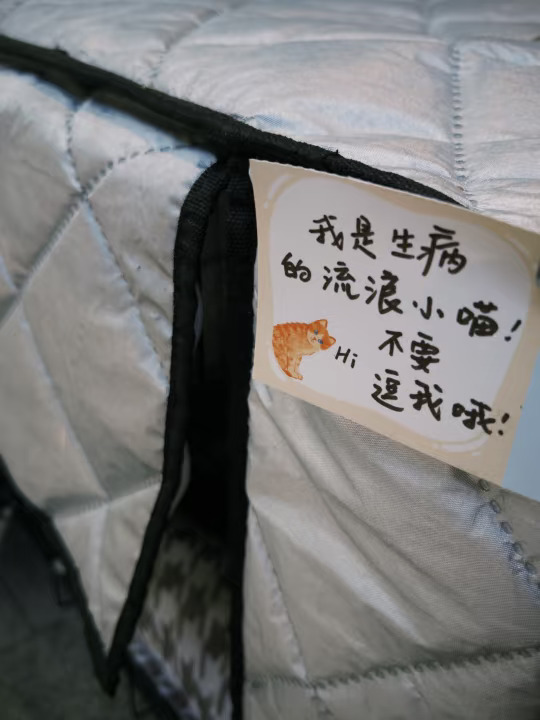 我是生病
的流浪小喵!
不要
Hi
逗我哦!